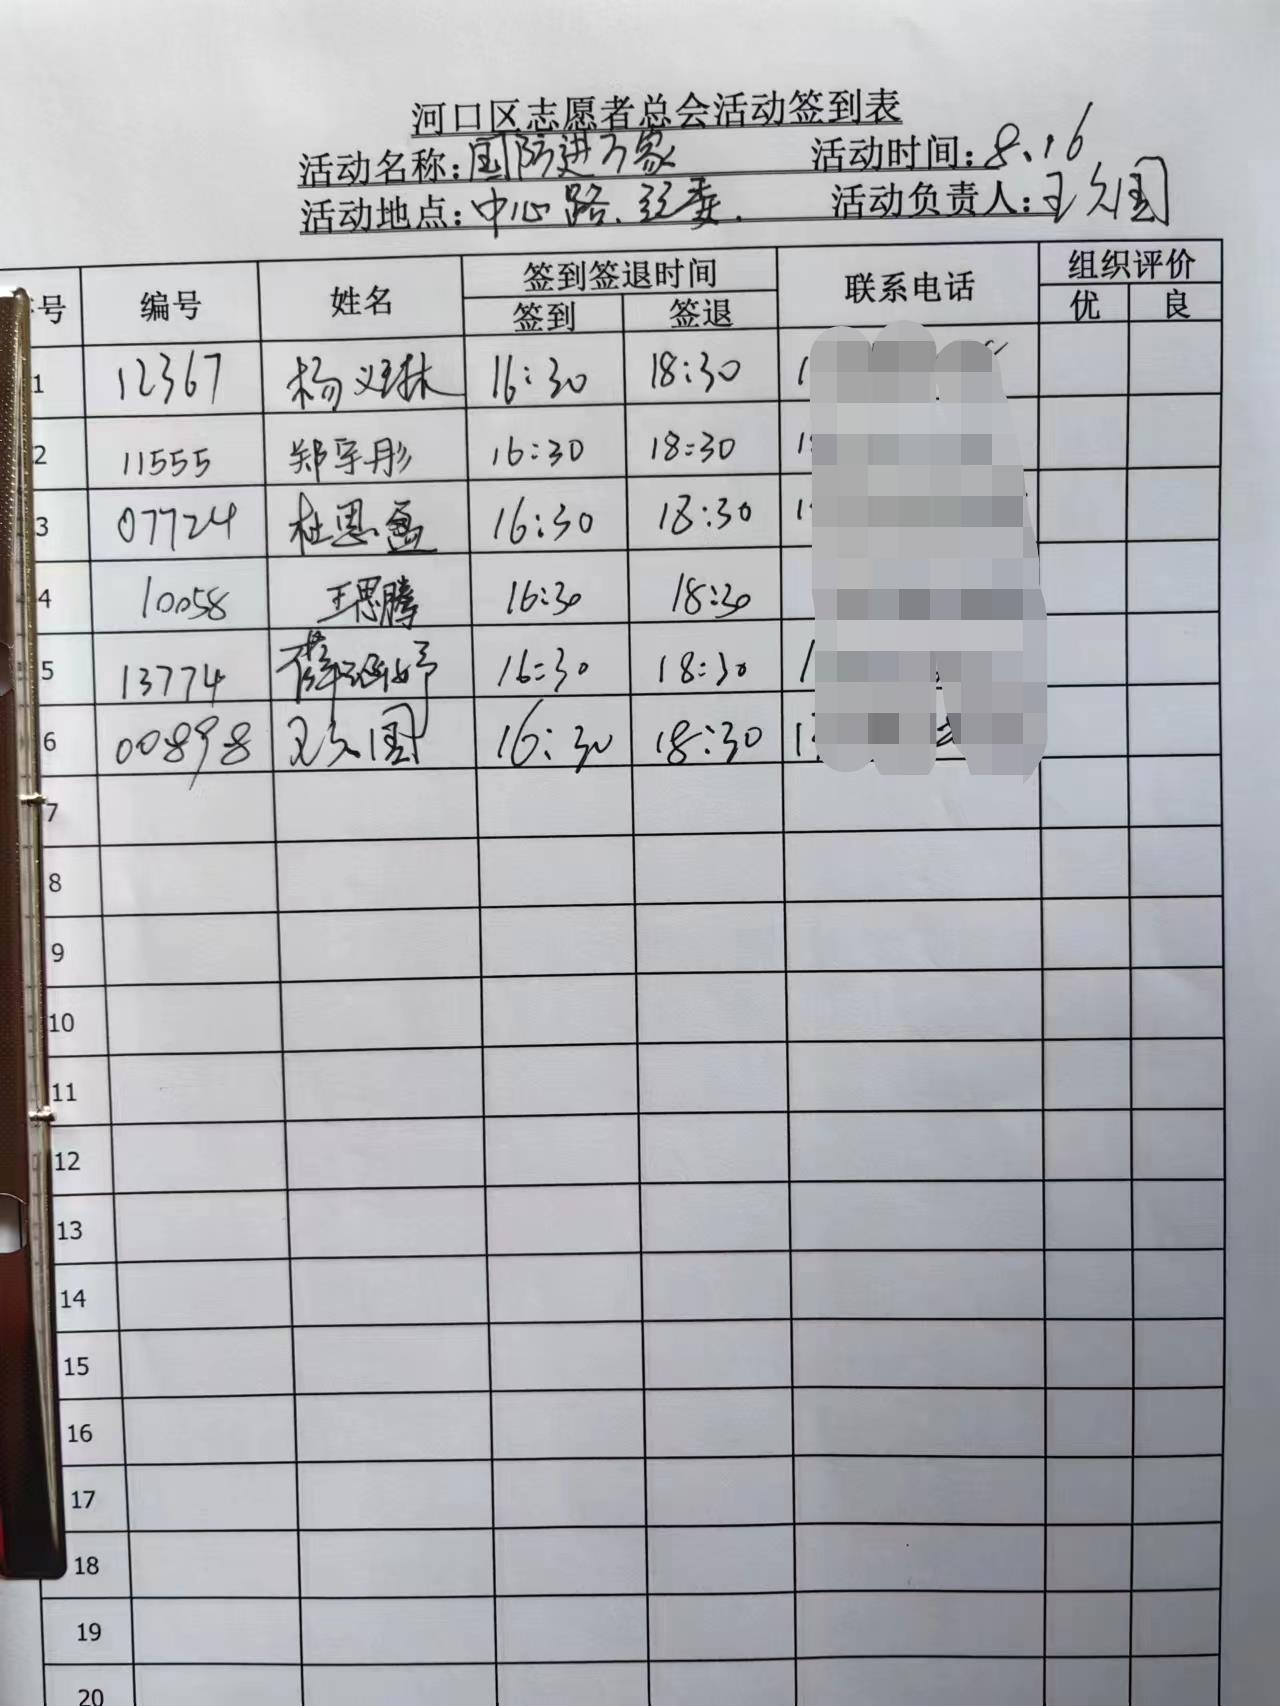 河口区志愿者总会活动签到表
活动名称:国防进万家 活动时间:8.16
活动地点:中心路、 活动负责人:王久国
号 编号 姓名 签到签退时间 联系电话 组织评价
签到 签退 优 良
1 12367 杨 16:30 18:30 1
2 11555 郑宇彤 16:30 18:30 1
3 07724 杜恩盈 16:30 18:30 1
4 10058 王思腾 16:30 18:30
5 13774 薛涵妤 16:30 18:30 1
6 00898 王久国 16:30 18:30 1
7
8
9
10
11
12
13
14
15
16
17
18
19
20